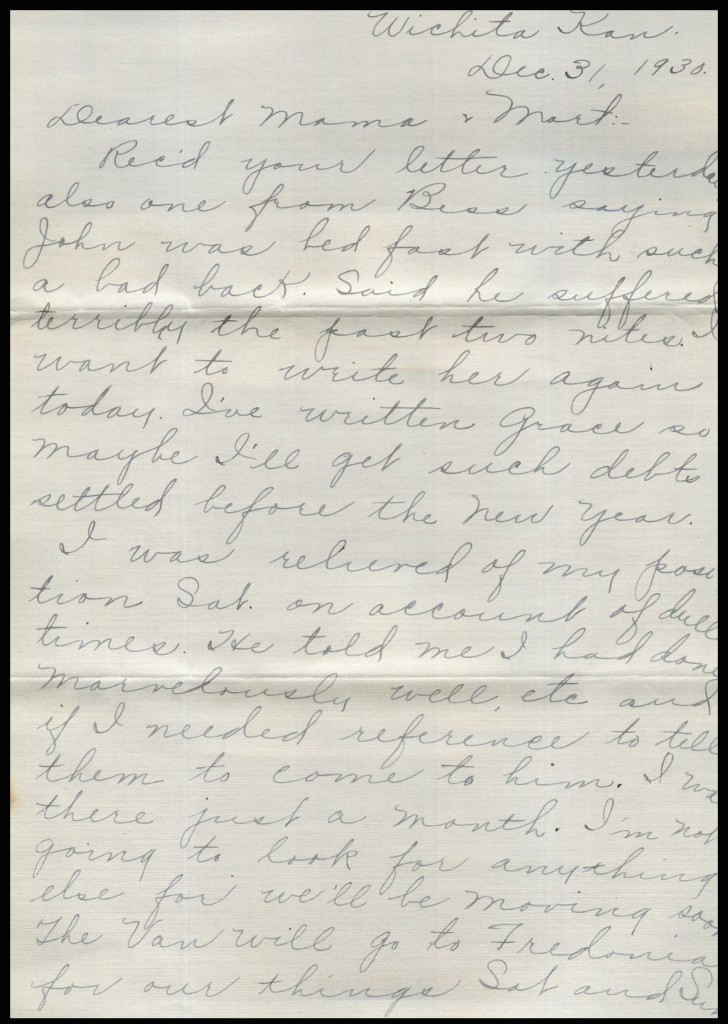 Wichita Kan.
Dec. 31, 1930.
Dearest Mama & Mart:-
Rec'd your letter yesterda
also one from Bess saying
John was bed fast with such
a bad back. Said he suffered
terribly the past two nites. I
want to write her again
today. I've written Grace so
maybe I'll get such debts
settled before the New Year.
I was relieved of my posi
tion Sat. on account of dull
times. He told me I had done
marvelously well, etc and
if I needed reference to tell
them to come to him. I wa
there just a month. I'm not
going to look for anything
else for we'll be moving soon
The Van will go to Fredonia
for our things Sat and Sun